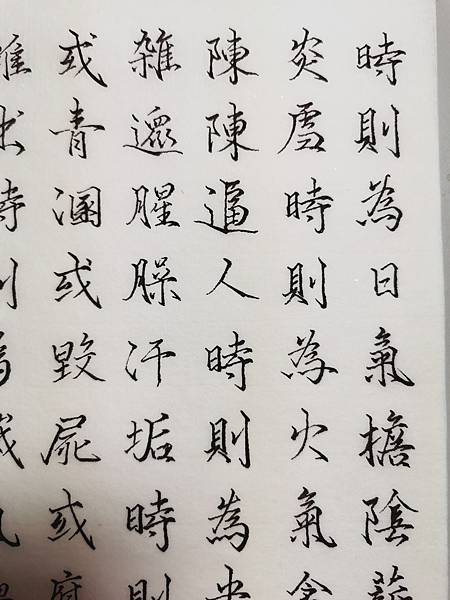 時則為日氣檐陰
炎虐時則為火氣
陳陳逼人時則為
雜遝腥臊汗垢時則
或青溷或毀屍或腐